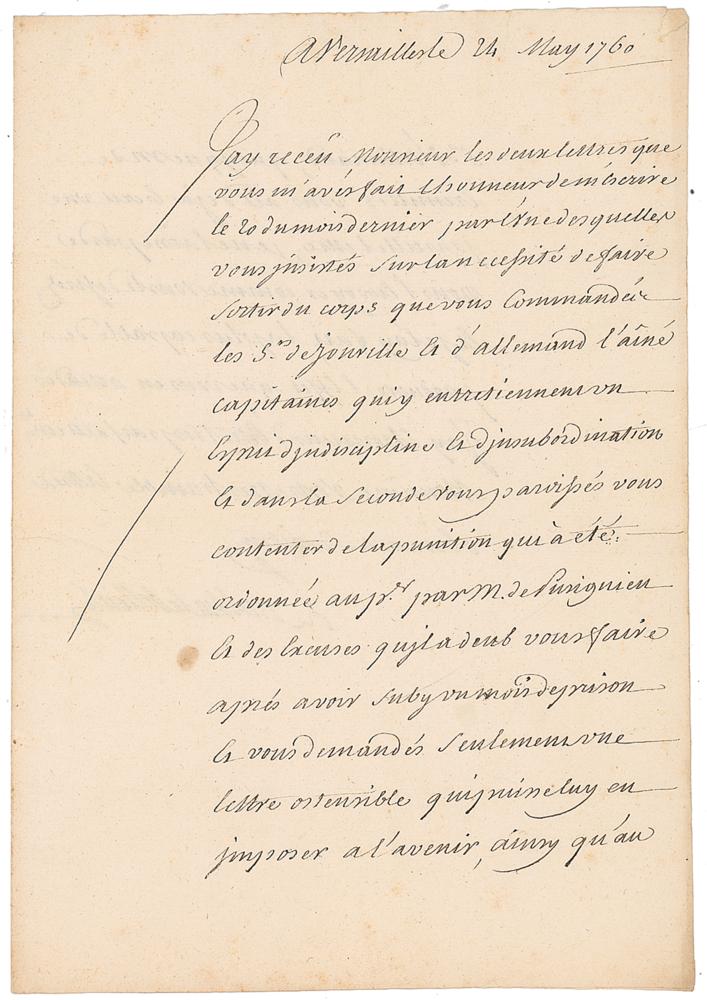 A Versailles le 24 May 1760
Jay receu Monsieur les deux lettres que
vous m'avés fait l'honneur de m'escrire
le 20 du mois dernier par l'une desquelles
vous jnsistés sur la necessité de faire
sortir du corps que vous Commandés
les S.rs de Jonville et d'allemand l'aîné
capitaines qui y entretiennent un
Esprit d'jndiscipline et d'jnsubordination
et dans la seconde vous paroissés vous
contenter de la punition qui à été
ordonnée au p.er par M. de
et des Excuses qu'jl a deub vous faire
aprés avoir suby un mois de prison
et vous demandés seulement une
lettre ostensible qui puisse luy en
jmposer a l'avenir, ainsy qu'au